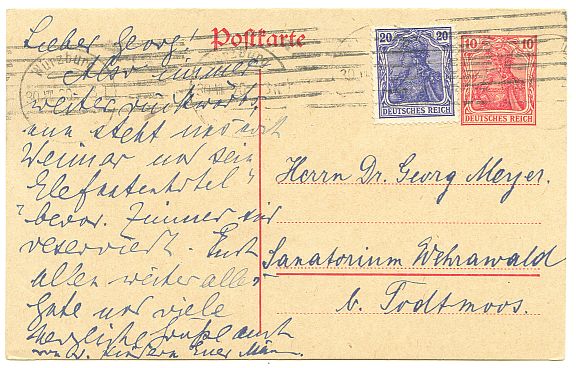 Postkarte
Lieber Georg!
Also immer
weiter rückwärts,
nun steht uns noch
Weimar und sein
"Elefantenhotel"
bevor. Zimmer sind
reserviert. Euch
allen weiter alles
Gute und viele
herzliche Grüße auch
von d. Kindern Euer
Würzburg
20
20
DEUTSCHES REICH
10
10
DEUTSCHES REICH
Herrn Dr. Georg Meyer.
Sanatorium Wehrawald
b. Todtmoos.